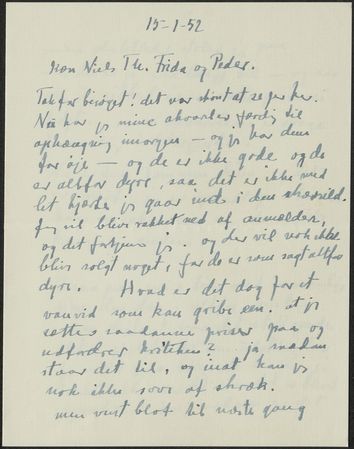 15-1-52
Kære Niels Th. Frida og Peder.
Tak for besøget! det var skønt at se jer her.
Nu har jeg mine akvareller færdig til
ophængning imorgen — og jeg har dem
for øje — og de er ikke gode og de
er altfor dyre, saa det er ikke med
let hjerte jeg gaar ind i den skærsild.
Jeg vil blive rakket ned af anmelder,
og det fortjener jeg. og der vil nok ikke
blive solgt noget, for de er som sagt altfor
dyre. Hvad er det dog for et
vanvid som kan gribe een. at jeg
sætter saadanne priser paa og
udfordrer kritiken? ja saadan
staar det til, og inat kan jeg
nok ikke sove af skræk.
men vent blot til næste gang